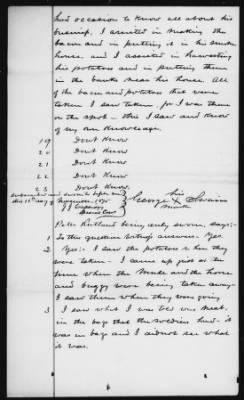 had occasion to know all about his
business, I assisted in making the
bacon and in putting it in his smoke
house, and I assisted in harvesting
his potatoes and in putting them
in the banks near his house. All
of the bacon and potatoes that were
taken I saw taken, for I was there
on the spot - this I saw and know
of my own knowledge.
19 Dont Know
20 Dont Know
21 Dont Know
22 Dont Know
23 Dont Know.
sworn to before me
his
November 1875
George X Swain
mark
being duly sworn, says:-
1 To this question witness answers - Yes.
2 Yes. I saw the potatoes when they
were taken - I came up just as the
time when the mule and the horse
and buggy were being taken away.
I saw them when they was going
3 I saw what I was told was meat,
in the bags that the soldiers had - it
was in bags and I did not see what
it was.